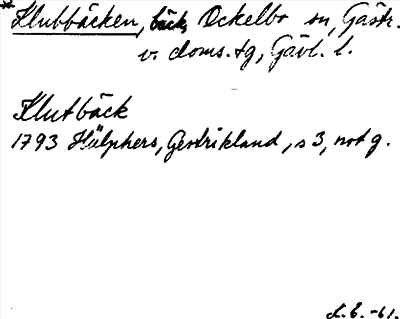 *Klubbäcken, bäck, Ockelbo sn, Gästr.
v. doms. tg, Gävl. l.
Klutbäck
1793 Hülphers, Gestrikland, s 3, not g.
L.E. -61.